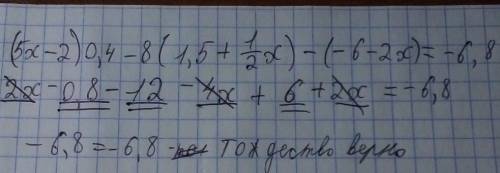 (5x-2)0,4-8(1,5+1/2x)-(-6-2x)=-6,8
2x-0,8-12-4x+6+2x=-6,8
-6,8=-6,8 тождество верно